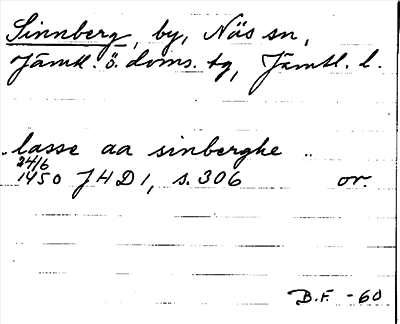 Sinnberg, by, Näs sn,
Jämtl. ö. doms. tg, Jämtl. l.
.. lasse aa sinberghe ..
24/6
1450 JHD 1, s. 306 or.
B.F. -60